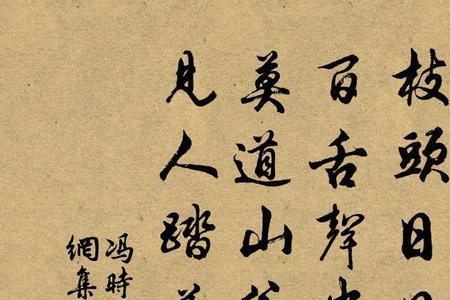 枝頭日
百舌聲
莫道山
見人踏
馮時
網集